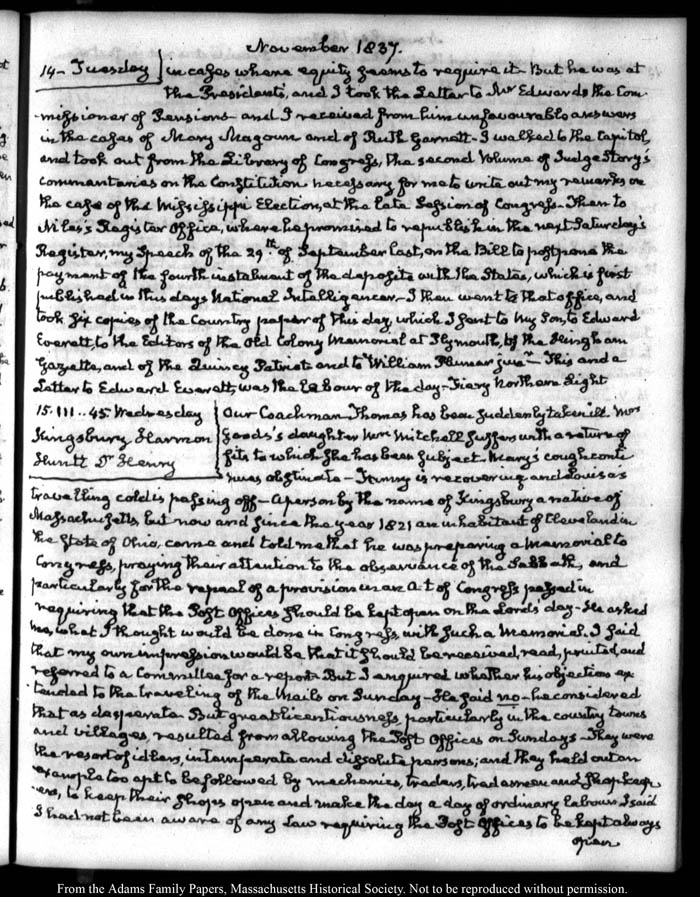 November 1837.
14 – Tuesday } in cases where equity seems to require it. But he was at
the Presidents, and I took the Letter to Mr Edwards the Com-
missioner of Pensions and I received from him unfavourable answers
in the cases of Mary Magoun and of Ruth Garnett – I walked to the Capitol,
and took out from the Library of Congress, the second Volume of Judge Story's
commentaries on the Constitution necessary for me to write out my remarks on
the case of the Mississippi Election, at the late Session of Congress. Then to
Niles's Register Office, where he promised to republish in the next Saturday's
Register, my Speech of the 29th of September last, on the Bill to postpone the
payment of the fourth instalment of the deposits with the States, which is first
published in this days National Intelligencer. – I then went to that office, and
took six copies of the Country paper of this day, which I sent to my Son, to Edward
Everett, to the Editors of the Old Colony Memorial at Plymouth, of the Hingham
Gazette, and of the Quincy Patriot and to William Plumer junr – This and a
Letter to Edward Everett, was the labour of the day – Fiery Northern Light
15. III.. 45. Wednesday
Kingsbury Harmon
Huntt Dr Henry
Our Coachman Thomas has been suddenly taken ill. Mrs
daughter Mrs Mitchell suffers with a nature of
fits to which she has been subject. Mary's cough conti
nues obstinate – Fanny is recovering and Louisa's
travelling cold is passing off – A person by the name of Kingsbury a native of
Massachusetts, but now and since the year 1821 an inhabitant of Cleveland in
the State of Ohio, came and told me that he was preparing a Memorial to
Congress, praying their attention to the observance of the Sabbath, and
particularly for the repeal of a provision in an Act of Congress passed in
requiring that the Post Offices should be kept open on the Lords day – He asked
me, what I thought would be done in Congress, with such a Memorial. I said
that my own impression would be that it should be received, read, printed, and
referred to a Committee for a report. But I enquired whether his objections ex
tended to the traveling of the Mails on Sunday – He said no – he considered
that as desperate. But great licentiousness, particularly in the country towns
and villages, resulted from allowing the Post Offices on Sundays – They were
the resort of idlers, intemperate and dissolute persons; and they held out an
example too apt to be followed by mechanics, traders, tradesmen and shopkeep
ers, to keep their shops open and make the day a day of ordinary labour. I said
I had not been aware of any Law requiring the Post Offices to be kept always
open
From the Adams Family Papers, Massachusetts Historical Society. Not to be reproduced without permission.